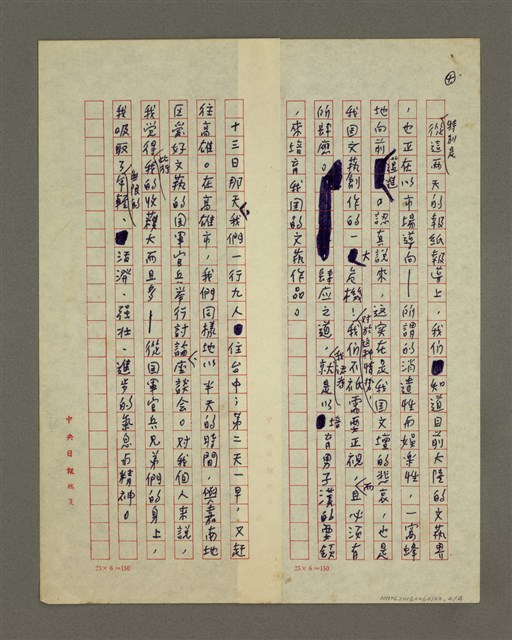 ④
特別是
從這兩天的報紙報導上，我們知道目前大陸的文執界
，也正在以市場導向——所謂的消遣性而娛樂性，一窩蜂
地向前邁進。認真說來，這實在是我国文壇的悲哀，也是
我国文執創作的一大危機！對於這种情勢，我們不祇需要正視，而且必須有
所肆應。肆应之道，我認為就是以培育男子漢的要領
，來培育我国的文執作品。
25×6＝150
十三日那天，我們一行九人住台中；第二天一早，又赶
往高雄。在高雄市，我們同樣地以半天的時間，與嘉南地
区爱好文執的国軍官兵舉行討論座談会。对我個人來說，
我覺得此行我的收穫大而且多——從国軍官兵兄弟們的身上，
我吸取了無限的年輕、清澄、强壮、進步的氣息与精神。
25×6＝150
中央日報稿箋